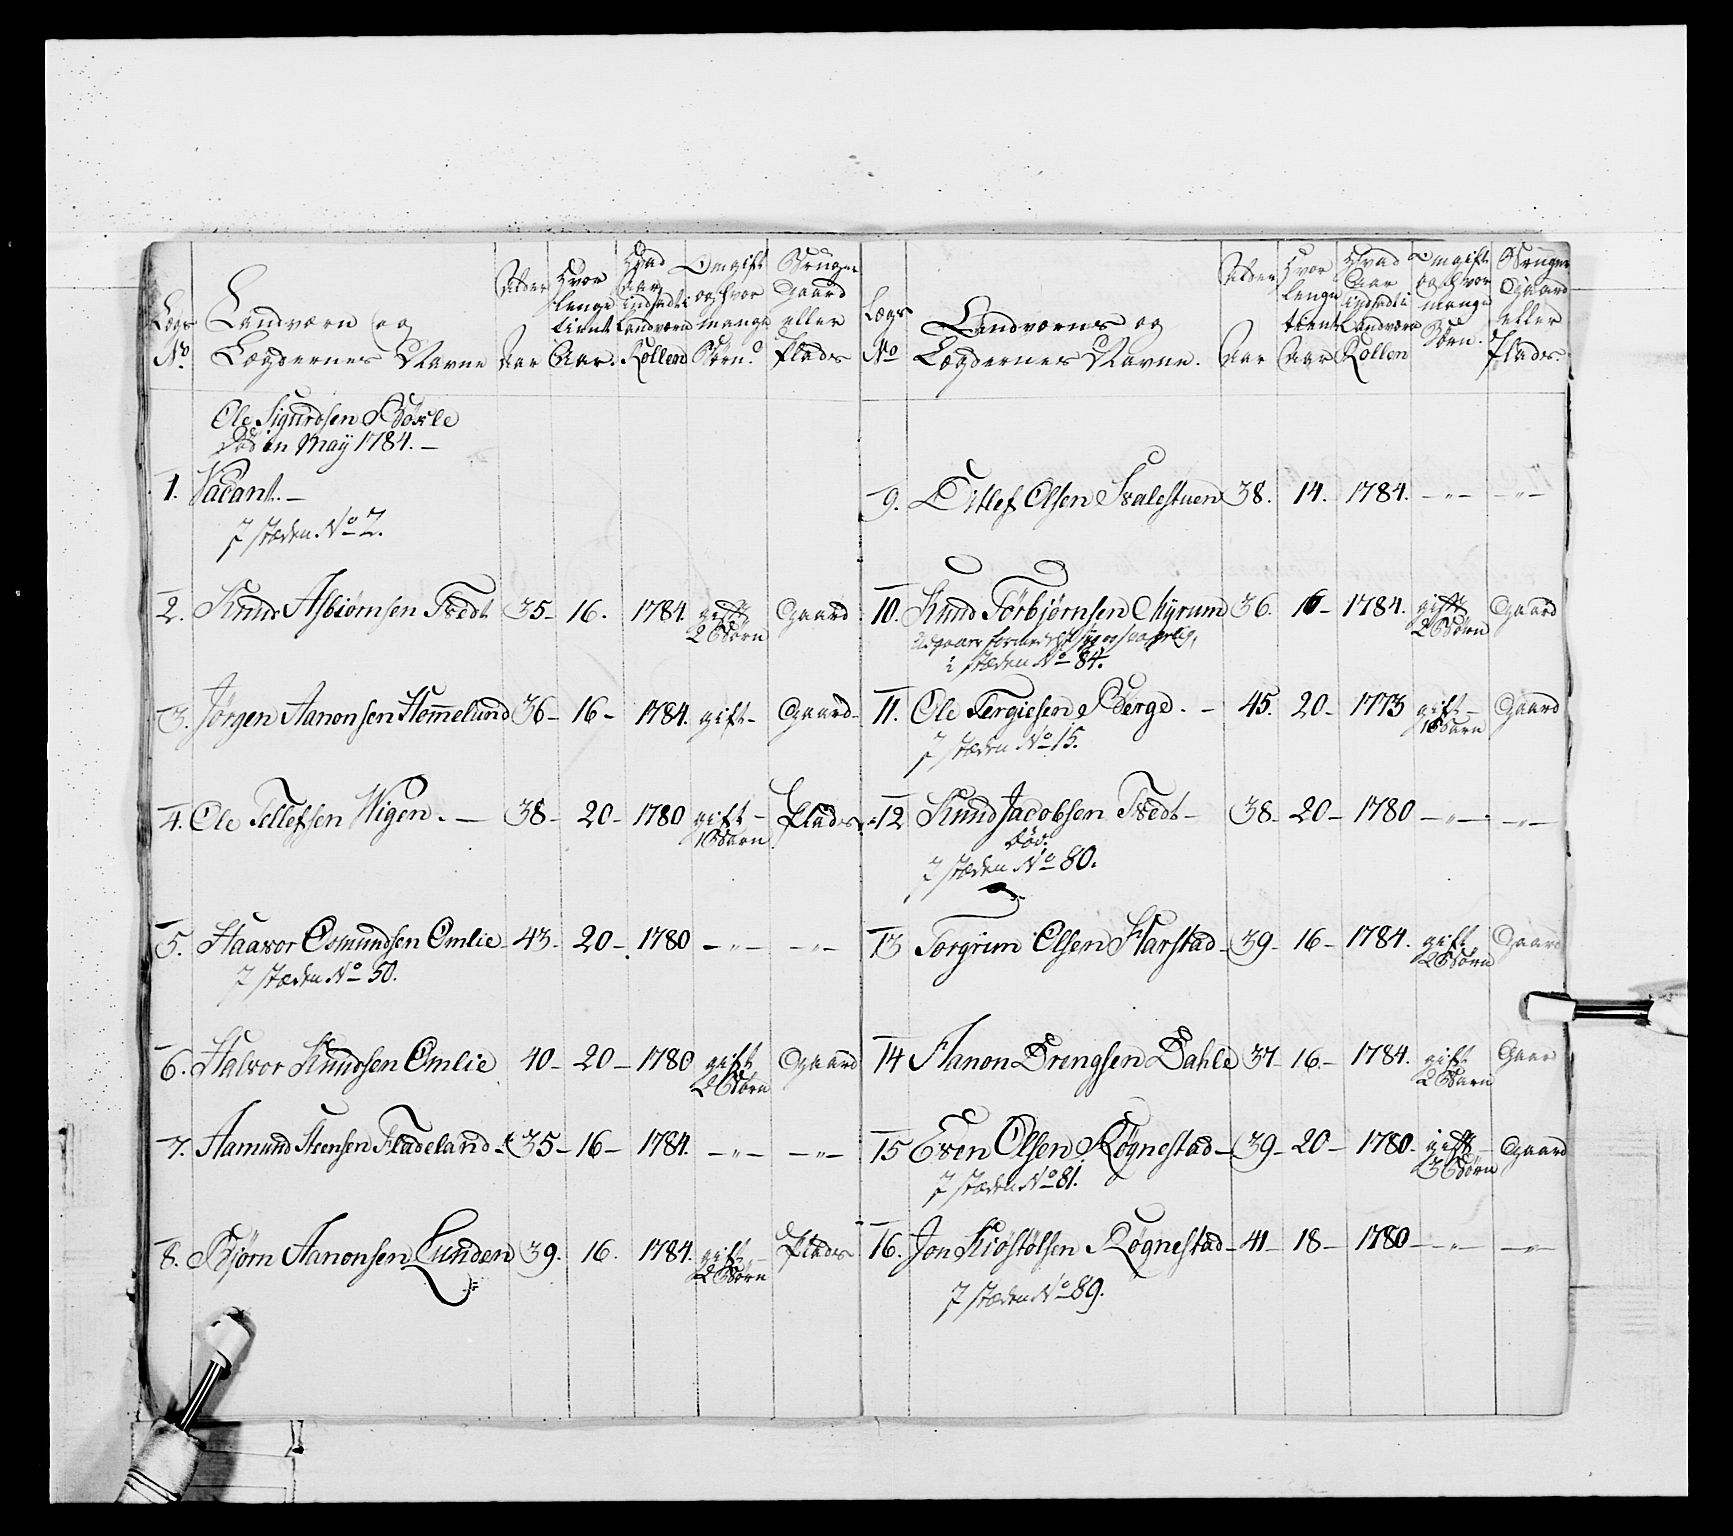 Lægs No.
Landværn og
Lægdernes Navne
Alder
Aar
Hvor
lenge
tient
Aar.
Hvad
Aar
indsadt i
Landværn
Rollen
Om gift
og hvor
mange
Børn.
Bruger
Gaard
eller
Plads
Ole Sigurdsen
Død in May 1784. —
1. Vacant. —
I stæden No 2.
2. Knud Asbiørnsen Tvedt 35 – 16. 1784. gift 2 Børn Gaard
3. Jørgen Aanonsen Hommelund 36 – 16 – 1784. gift – Gaard –
4. Ole Tellefsen Wigen. — 38 – 20 – 1780 gift – 1 Barn Plads
5. Haavor Osmundsen Omlie 43 – 20 – 1780 – „ – – „ –
I stæden No 50.
6. Halvor Knudsen Omlie 40 – 20 – 1780 gift 2 Børn Gaard
7. Aamund Steensen Fladeland – 35 – 16 – 1784. – „ – – „ –
8. Biørn Aanonsen Lunden 39. 16. 1784. gift 2 Børn Plads
Lægs No
Landværns og
Lægdernes Navne.
Alder
Aar
Hvor
lenge
tient
Aar
Hvad
Aar
indsadt i
Landværn
Rollen
Om gift
og hvor
mange
Børn.
Bruger
Gaard
eller
Plads.
9. Ditlef Olsen Svalestuen 38. 14. 1784. – „ – – „ –
10. Knud Torbjørnsen 36. 16 – 1784. gift 2 Børn Gaard
i stæden No 84.
11. Ole Tergiesen Berge. – 45. 20 – 1773 gift – 1 Barn Gaard
I stæden No 15.
12 Knud Jacobsen Tvedt – 38 – 20 – 1780 – „ – – „ –
Død.
I stæden No 80.
13 Torgrim Olsen Harstad – 39 – 16 – 1784. gift 2 Børn Gaard
14 Aanon Drengsen Dahle 37 – 16 – 1784. gift 2 Barn Gaar
15 Even Olsen Røgnestad – 39 – 20 – 1780 – gift 3 Børn Gaard
I stæden No 81.
16. Jon Kiøstølsen Røgnestad – 41 – 18 – 1780 – „ – – „ –
I stæden No 89.